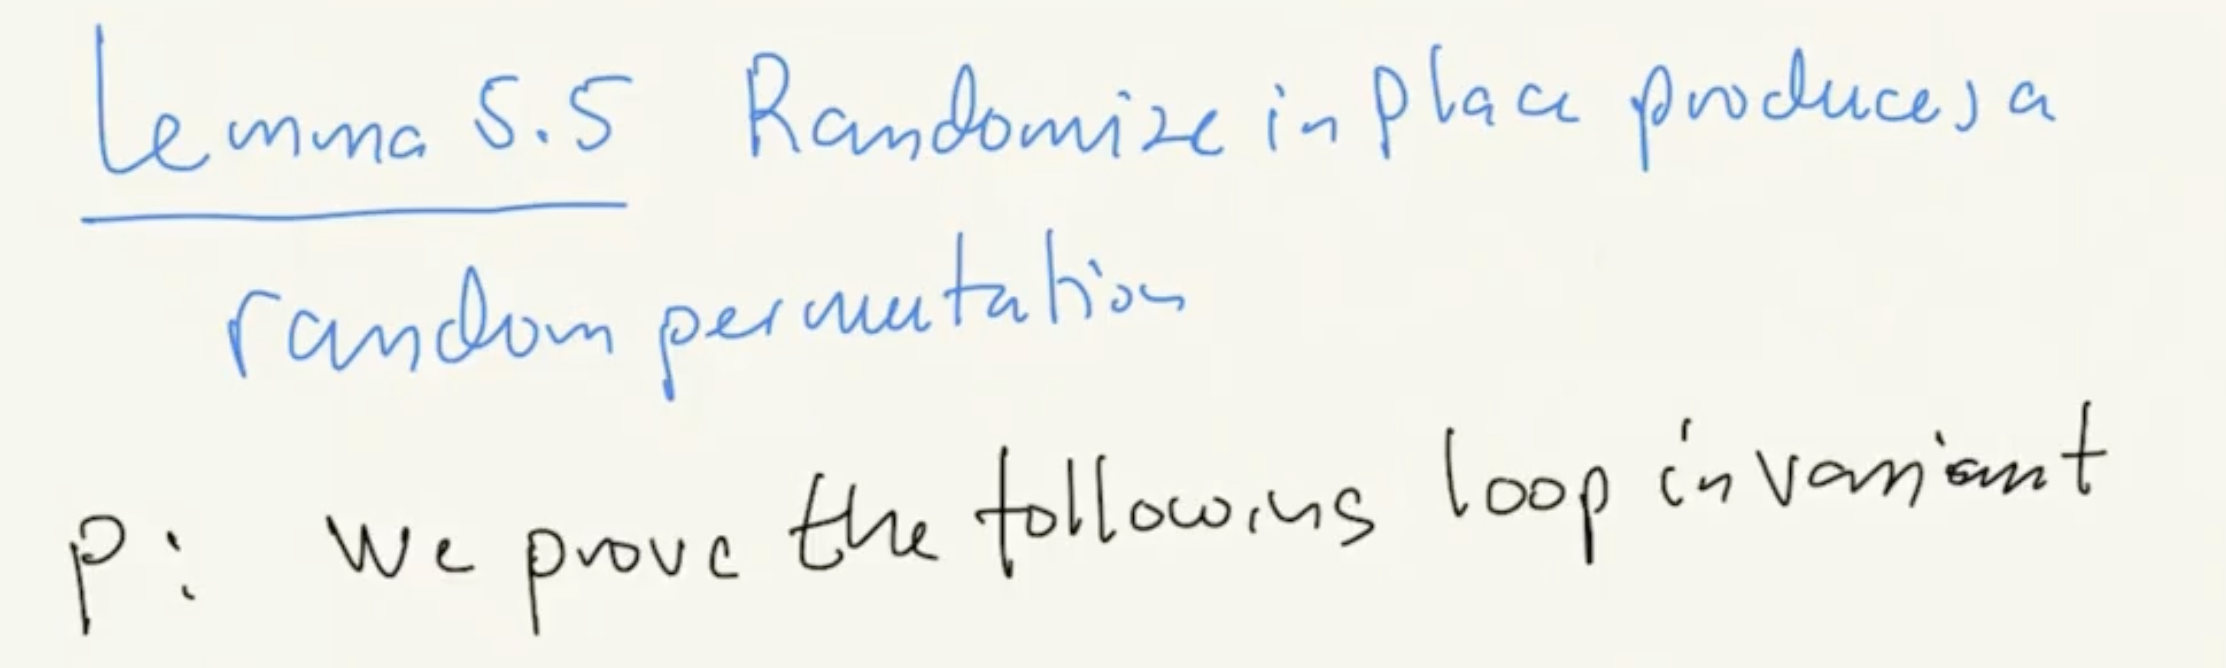 Lemma 5.5 Randomize in place produces a
random permutation
P: We prove the following loop invariant